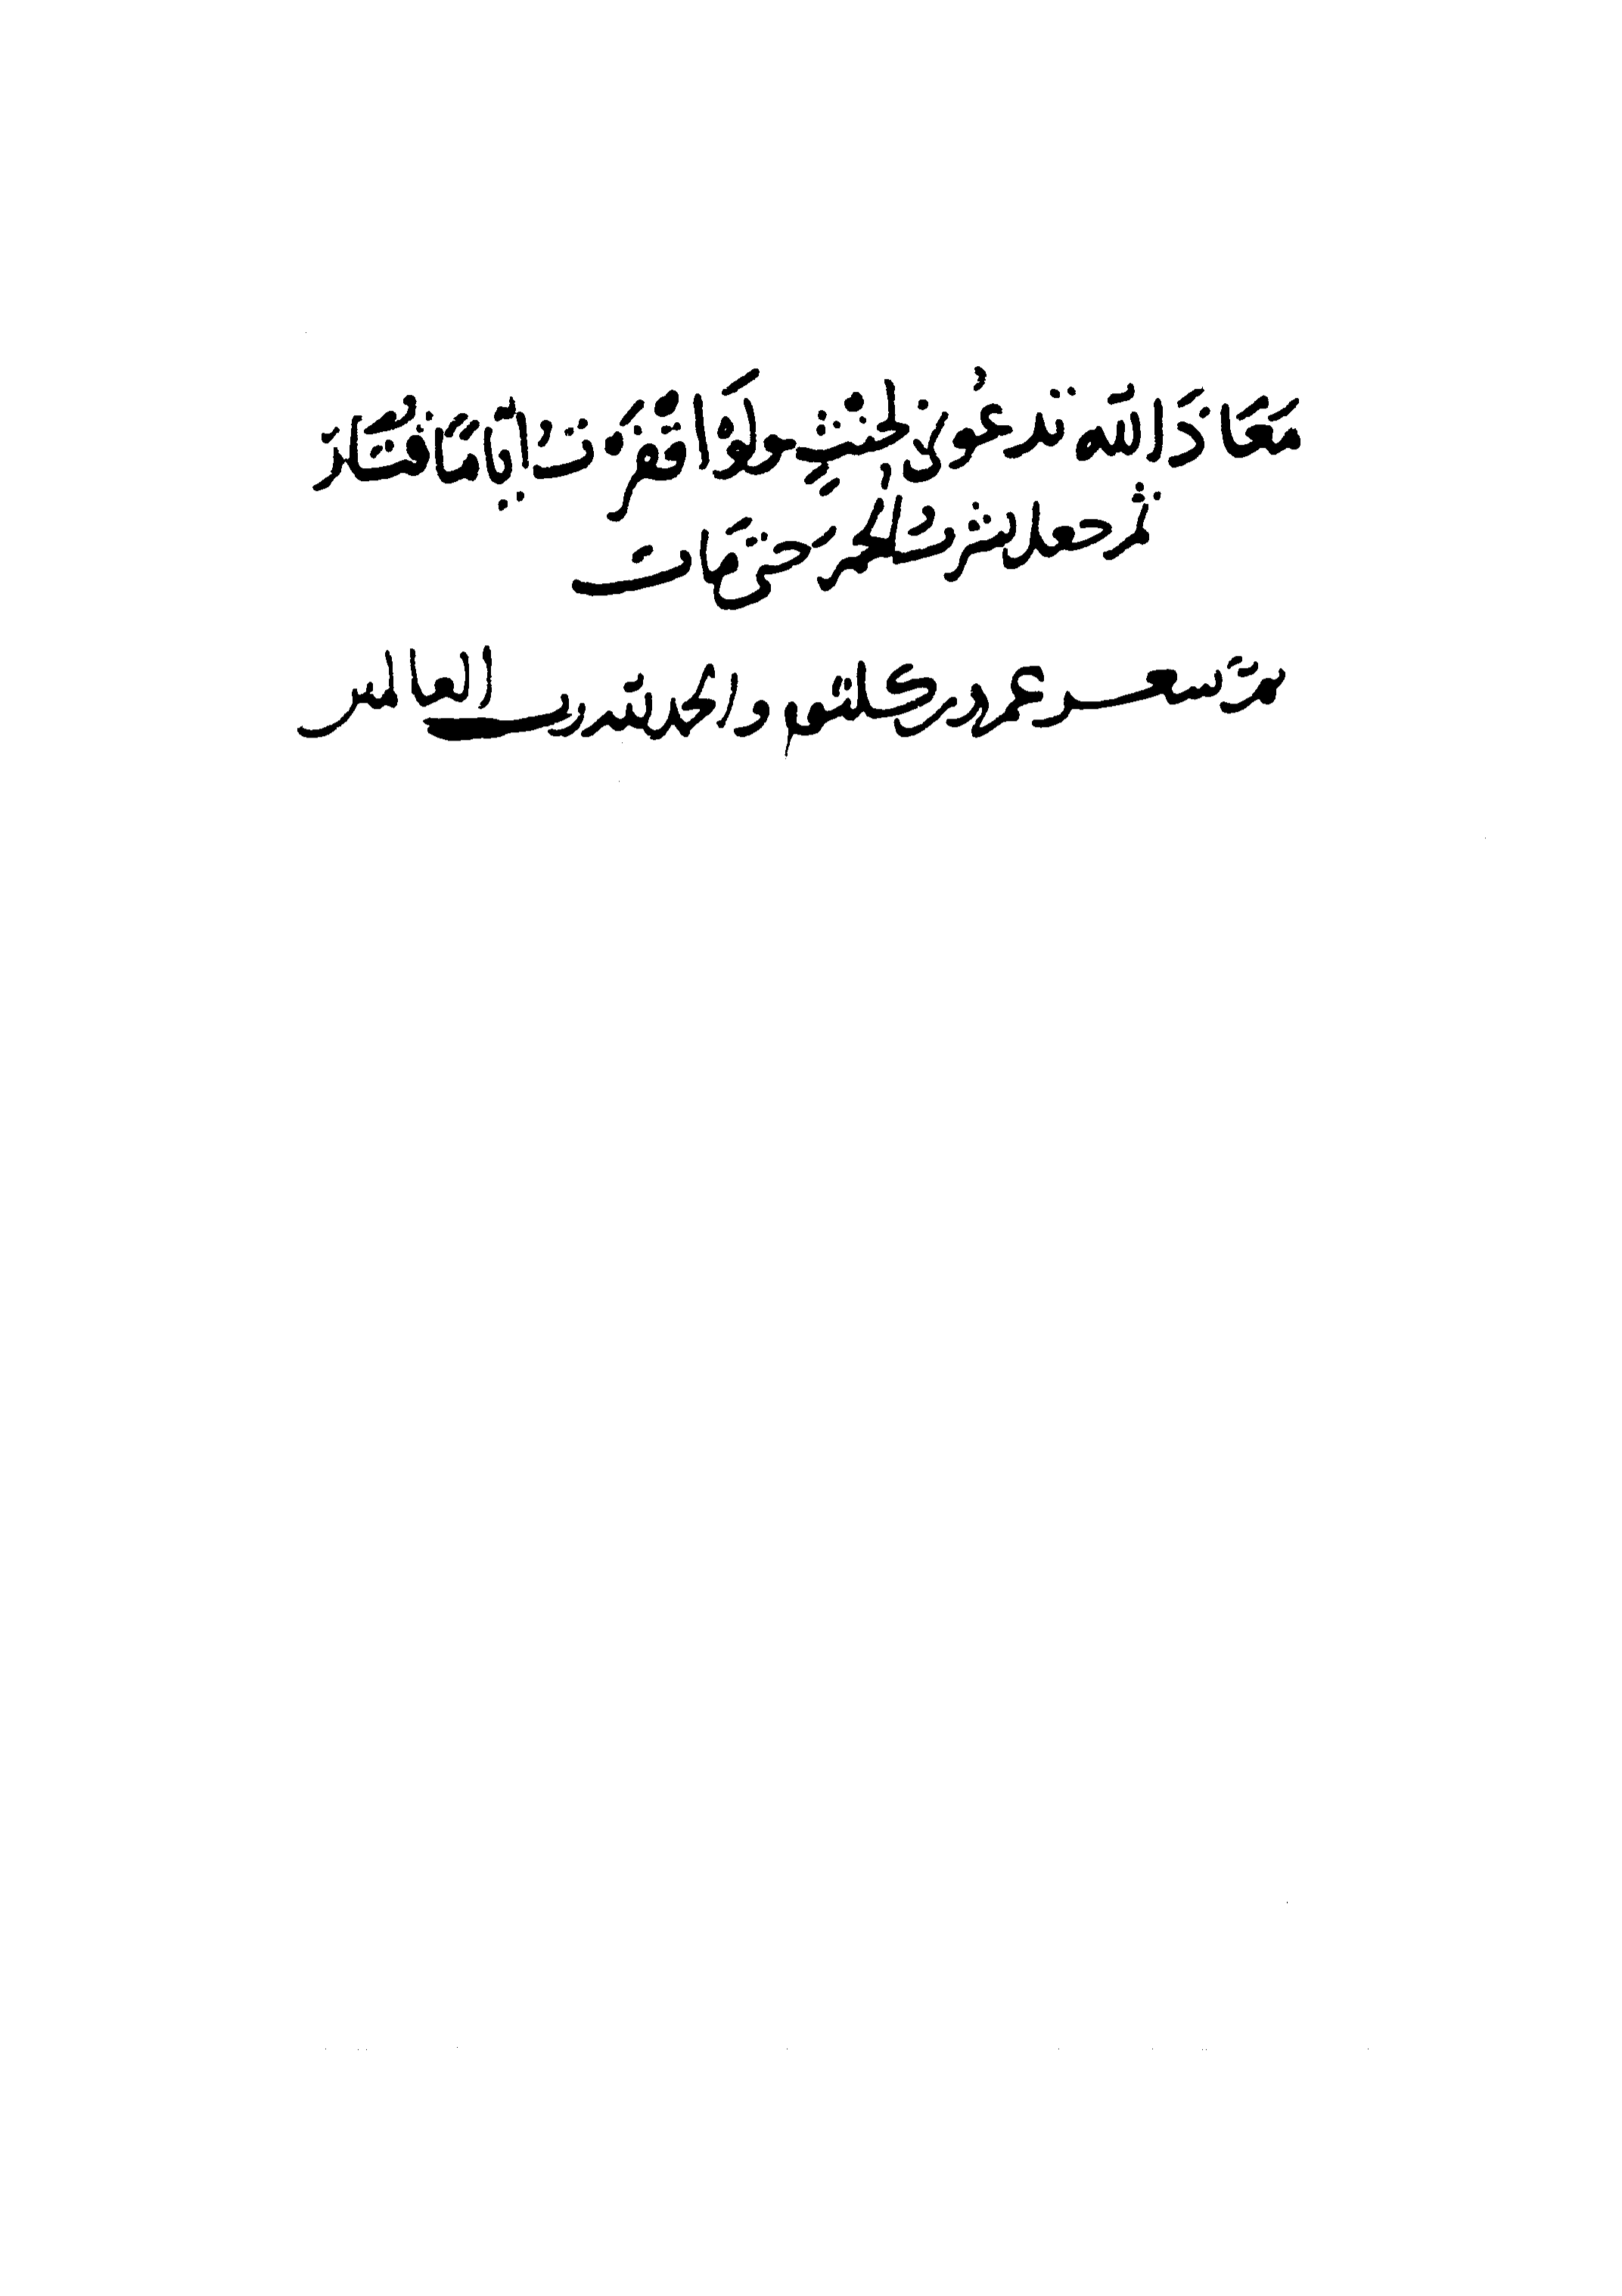 مَعَاذَ اللّه تدعُوني لحِنْثٍ ولَوْ اقْفَرَتُ ايّامًا قُتَارَ
ثم جعل يشربُ الخمرَ حتى مَات
تمّ شعر عمرو بن كلثوم والحمد لله رب العالمين